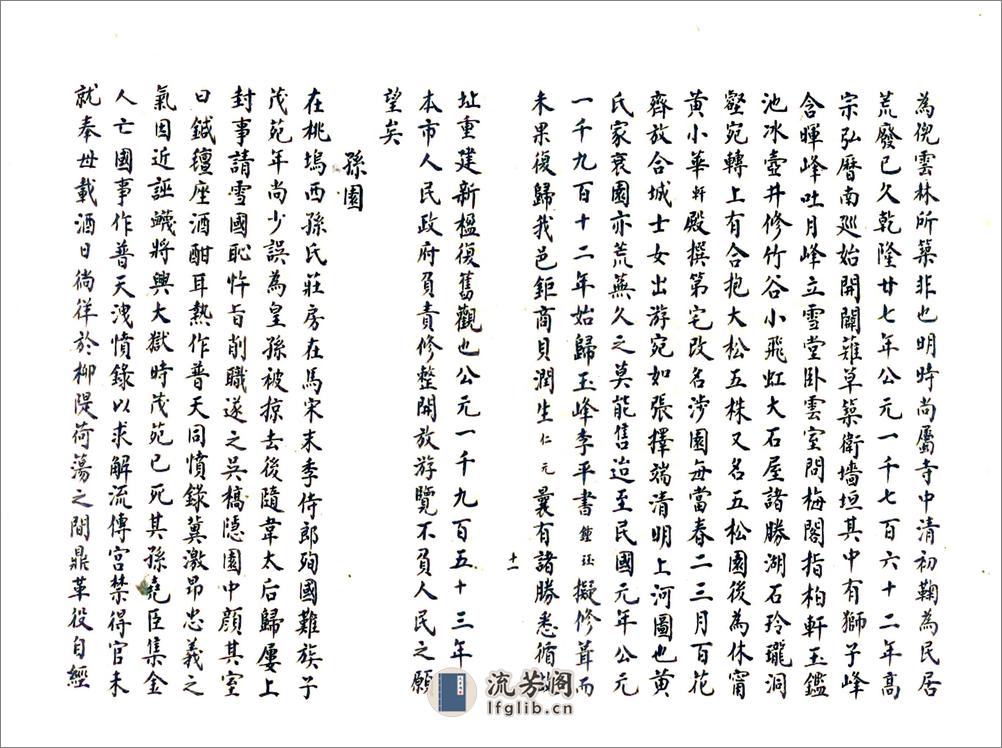 為倪雲林所築非也明時尚屬寺中清初鞠為民居
荒廢已久乾隆廿七年公元一千七百六十二年高
宗弘曆南巡始開闢薙草築衛墻垣其中有獅子峰
含暉峰吐月峰立雪堂卧雲室問梅閣指柏軒玉鑑
池冰壺井修竹谷小飛虹大石屋諸勝湖石玲瓏洞
壑宛轉上有合抱大松五株又名五松園後為休甯
黃小華軒殿撰第宅改名涉園每當春二三月百花
齊放合城士女出游宛如張擇端清明上河圖也黃
氏家衰園亦荒蕪久之莫能售迨至民國元年公元
一千九百十二年始歸玉峰李平書鍾珏擬修葺而
未果復歸我邑鉅商貝潤生仁元曩有諸勝悉循
十一
址重建新楹復舊觀也公元一千九百五十三年
本市人民政府負責修整開放游覽不負人民之願
望矣
孫園
在桃塢西孫氏莊房在馬宋末季侍郎殉國難族子
茂苑年尚少誤為皇孫被掠去後隨韋太后歸屢上
封事請雪國恥忤旨削職遂之吳槁隱園中顏其室
曰鋮𥫃座酒酣耳熱作普天同憤錄冀激昂忠義之
氣因近誣蠛將興大獄時茂苑已死其孫堯臣集金
人亡國事作普天洩憤錄以求解流傳宮禁得官未
就奉母載酒日徜徉於柳隄荷蕩之間鼎革役自經
流芳閣
lfglib.cn